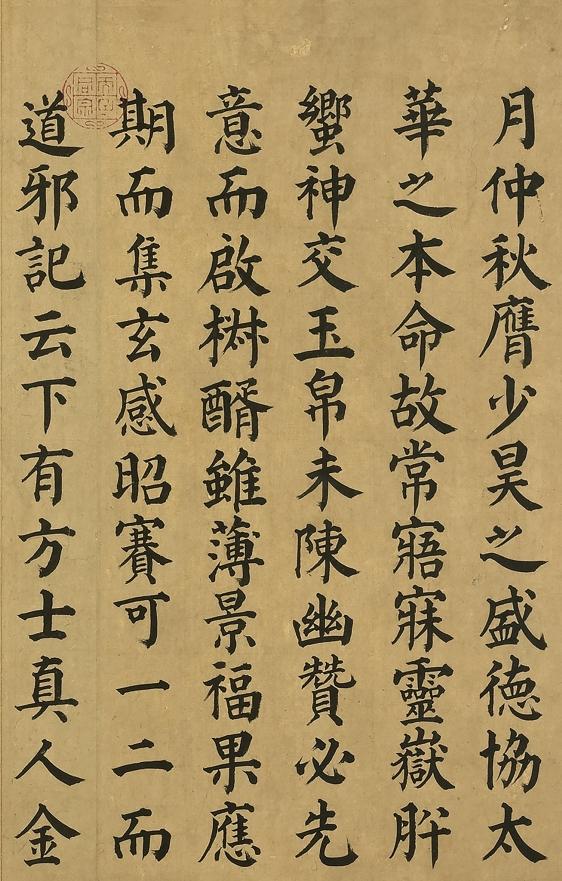 月仲秋膺少昊之盛德協太
華之本命故常寤寐靈嶽肸
蠁神交玉帛未陳幽贊必先
意而啟椒醑雖薄景福果應
期而集玄感昭賽可一二而
道邪記云下有方士真人金